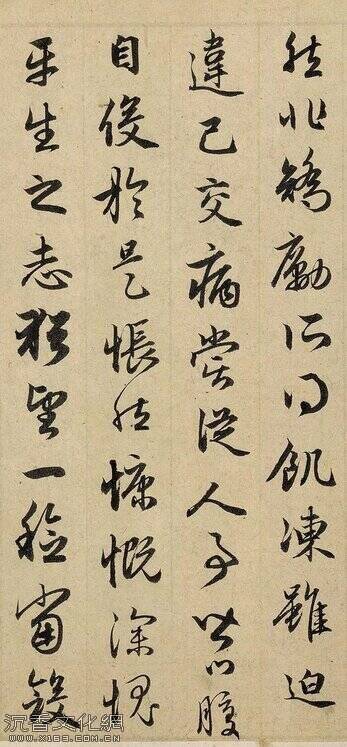 然非矯勵所得飢凍雖迫
違己交病嘗從人事皆口腹
自役於是悵然慷慨深愧
平生之志猶望一稔當斂
沉香文化網